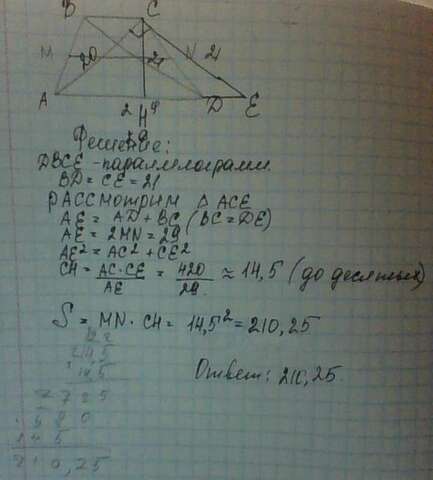 B C
M 20 21 N 21
A 2 H φ D E
Решение:
DBCE - параллелограмм.
BD = CE = 21
рассмотрим △ ACE
AE = AD + BC (BC = DE)
AE = 2MN = 29
AE² = AC² + CE²
CH = AC·CE / AE = 420 / 29 ≈ 14,5 (до десятых)
S = MN · CH = 14,5² = 210,25
14,5
14,5
725
580
145
210,25
Ответ: 210,25.